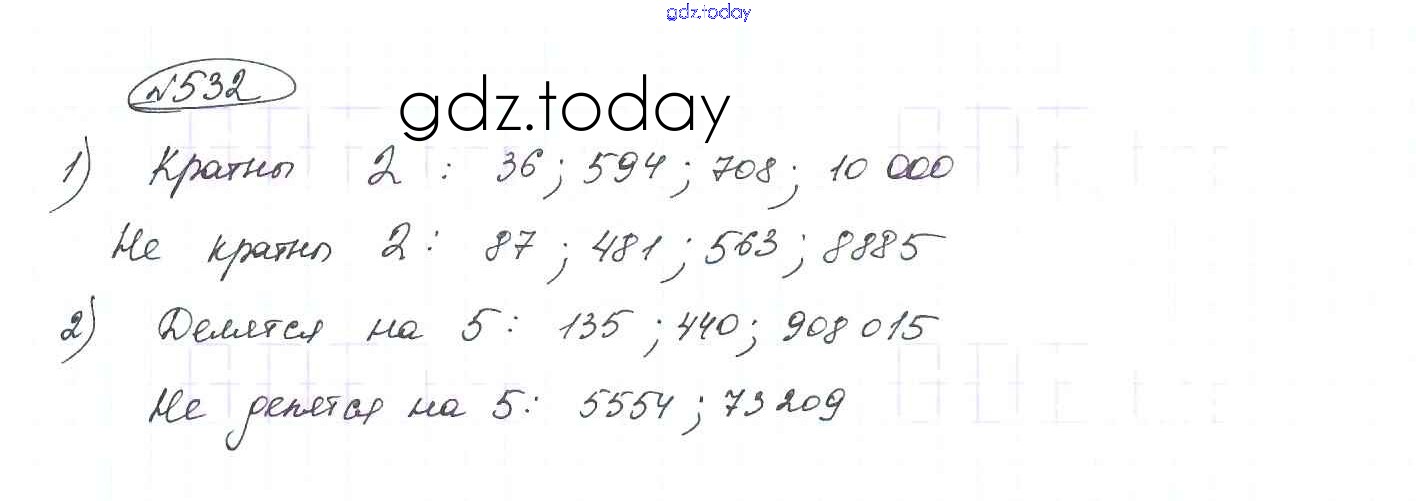 gdz.today
№532
gdz.today
1) Кратны 2 : 36; 594; 708; 10 000
Не кратны 2: 87; 481; 563; 8885
2) Делятся на 5: 135; 440; 908 015
Не делятся на 5: 5554; 73 209